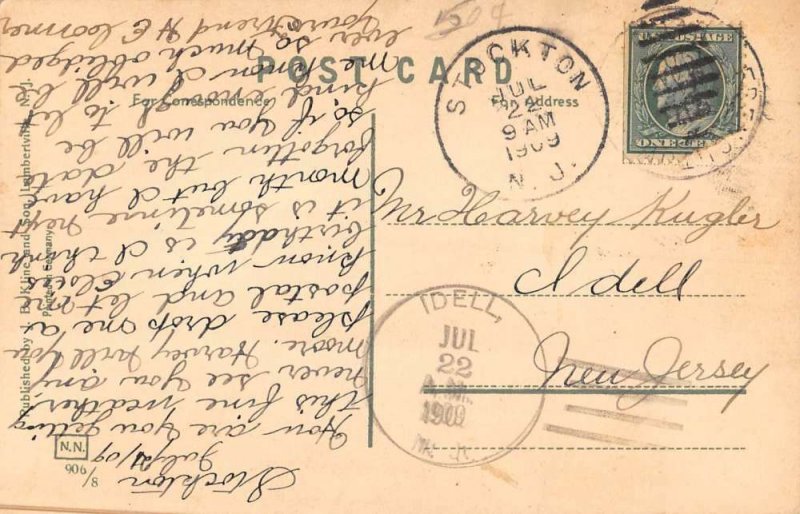 1509
POST CARD
For Correspondence
For Address
U.S. POSTAGE
ONE CENT
STOCKTON
JUL
22
9 AM
1909
N. J.
Mr Harvey Kugler
Idell
New Jersey
IDELL,
JUL
22
1909
N. J.
Stockton
July 21/09
How are you getting
this fine weather,
never see you any
moore. Harvey will you
please drop me a
postal and let me
know when
birthday is I think
it is sometime next
month but I have
forgotten the date
so if you will be
kind enough to let
me know I will be
ever so much obliged
Your friend H E Corner
Published by J. B. Kline and Son, Lambertville, N. J.
Printed in Germany
N.N.
906/8